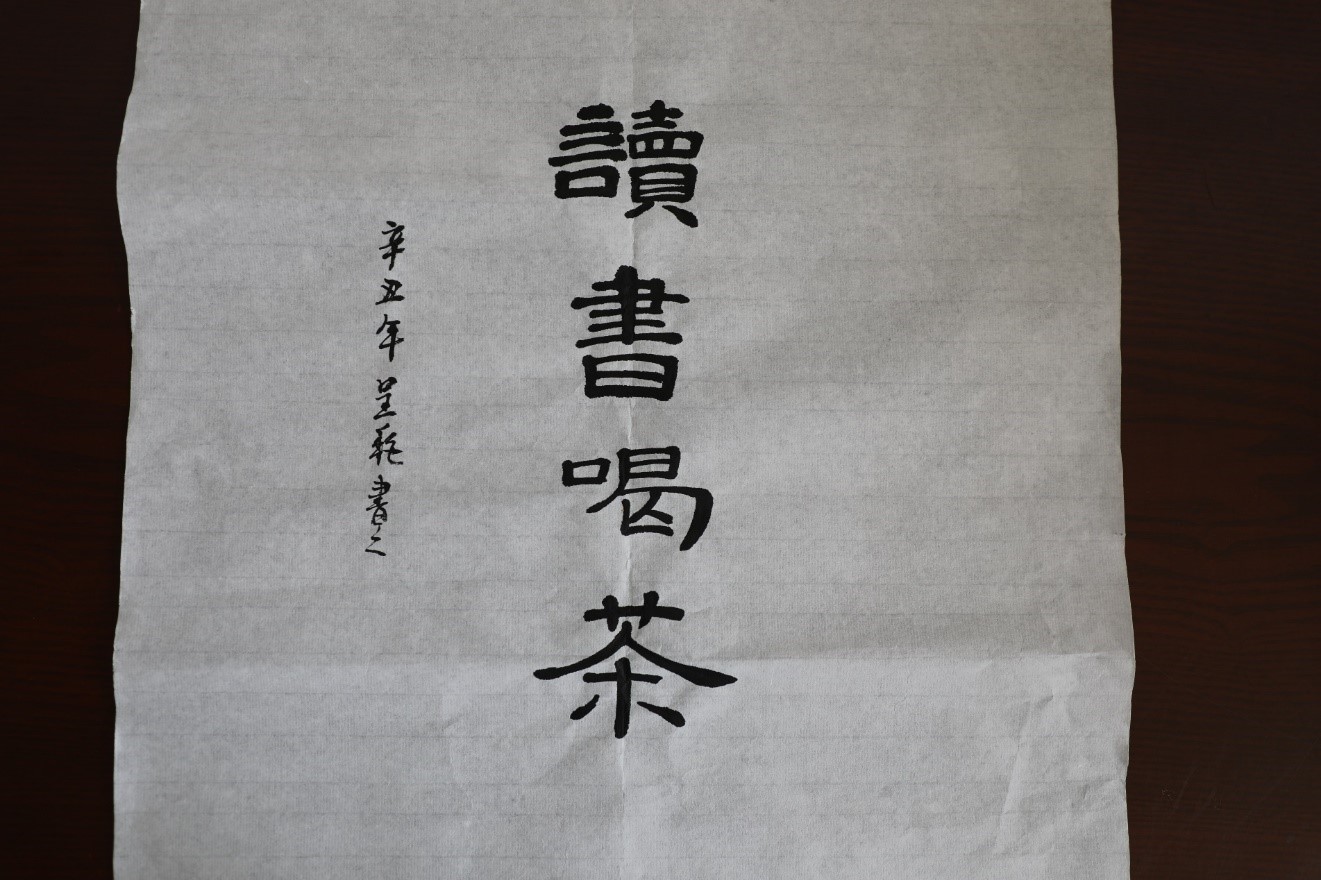 讀書喝茶
辛丑年呈乾書之